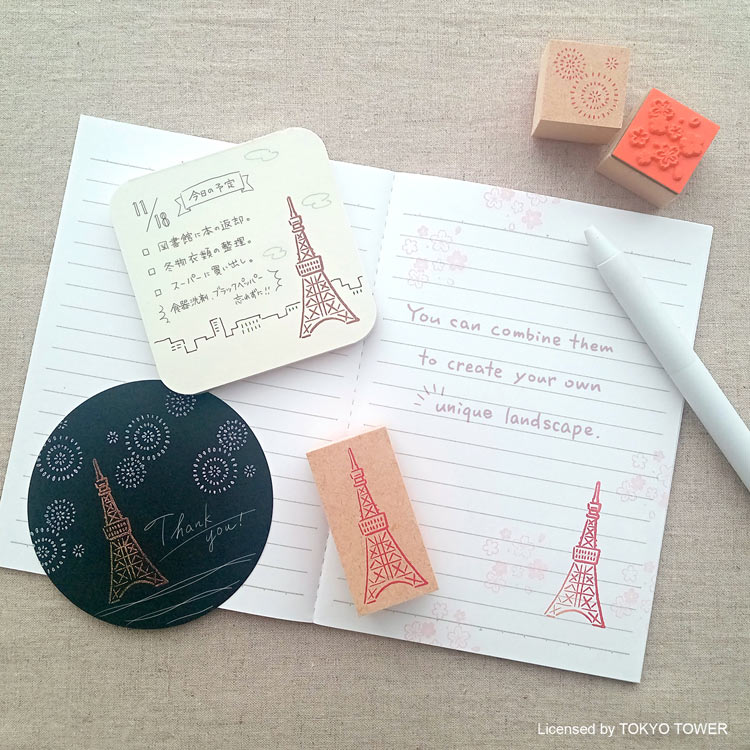 11/18
今日の予定
□ 図書館に本の返却。
□ 冬物衣類の整理。
□ スーパーに買い出し。
食器洗剤、ブラックペッパー
忘れずに!!
You can combine them
to create your own
unique landscape.
Thank
you!
Licensed by TOKYO TOWER